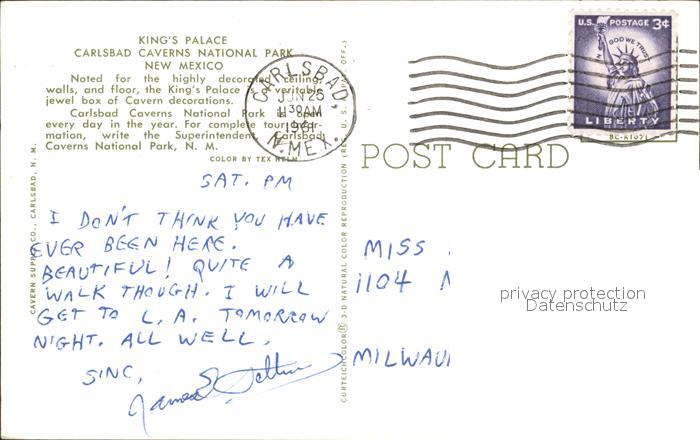 KING'S PALACE
CARLSBAD CAVERNS NATIONAL PARK
NEW MEXICO
Noted for the highly decorated ceiling,
walls, and floor, the King's Palace veritable
jewel box of Cavern decorations.
Carlsbad Caverns National Park is open
every day in the year. For complete tour infor-
mation, write the Superintendent, Carlsbad
Caverns National Park, N. M.
COLOR BY TEX HELM
CAVERN SUPPLY CO., CARLSBAD, N. M.
CURTEICHCOLOR 3-D NATURAL COLOR REPRODUCTION (REG. U. S. PAT. OFF.)
CARLSBAD,
JUN 25
11 30 AM
1961
N. MEX.
U.S. POSTAGE 3¢
IN GOD WE TRUST
LIBERTY
POST CARD
SAT. PM
I DON'T THINK YOU HAVE
EVER BEEN HERE.
BEAUTIFUL! QUITE A
WALK THOUGH. I WILL
GET TO L.A. TOMORROW
NIGHT. ALL WELL.
SINC,
James
MISS
1104
MILWAU
privacy protection
Datenschutz